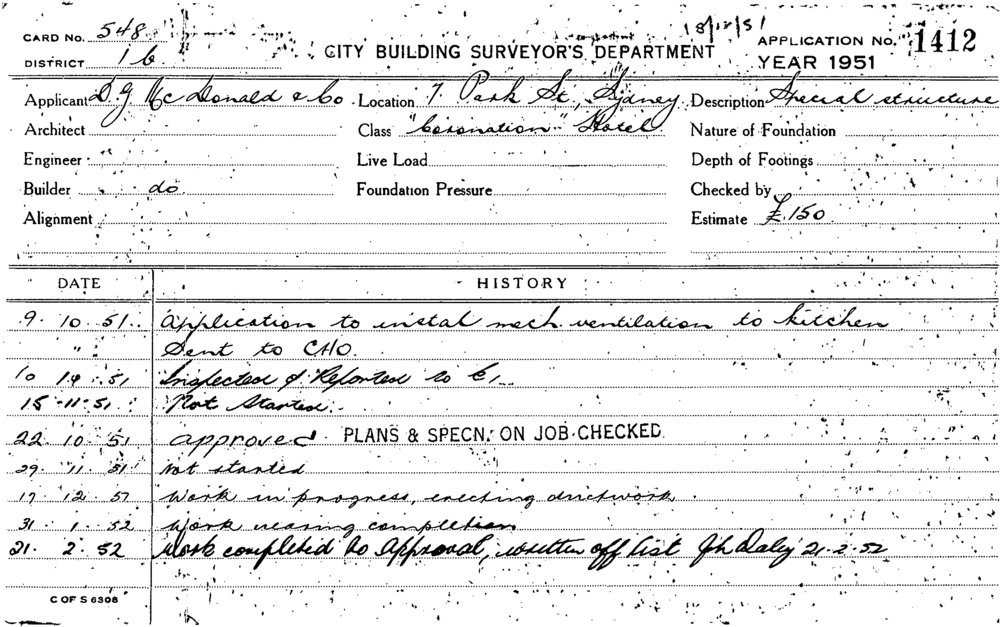 CARD No. 548
18/12/51
APPLICATION No. 1412
DISTRICT 1b
CITY BUILDING SURVEYOR'S DEPARTMENT
YEAR 1951
Applicant D. J. McDonald & Co Location 7 Park St, Sydney Description Special structure
Architect Class "Coronation" Hotel Nature of Foundation
Engineer Live Load Depth of Footings
Builder do Foundation Pressure Checked by
Alignment Estimate £150
DATE HISTORY
9. 10. 51 Application to instal mech. ventilation to kitchen
" Sent to CHO.
10 10 51 Inspected & Reported to
15-11-51 Not Started.
22. 10. 51 approved PLANS & SPECN. ON JOB CHECKED
29. 11. 51 Not started
17 12. 51 Work in progress, erecting ductwork.
31 1. 52 Work nearing completion
21. 2. 52 Work completed to Approval, written off list Jh Daley 21-2-52
C OF S 6308